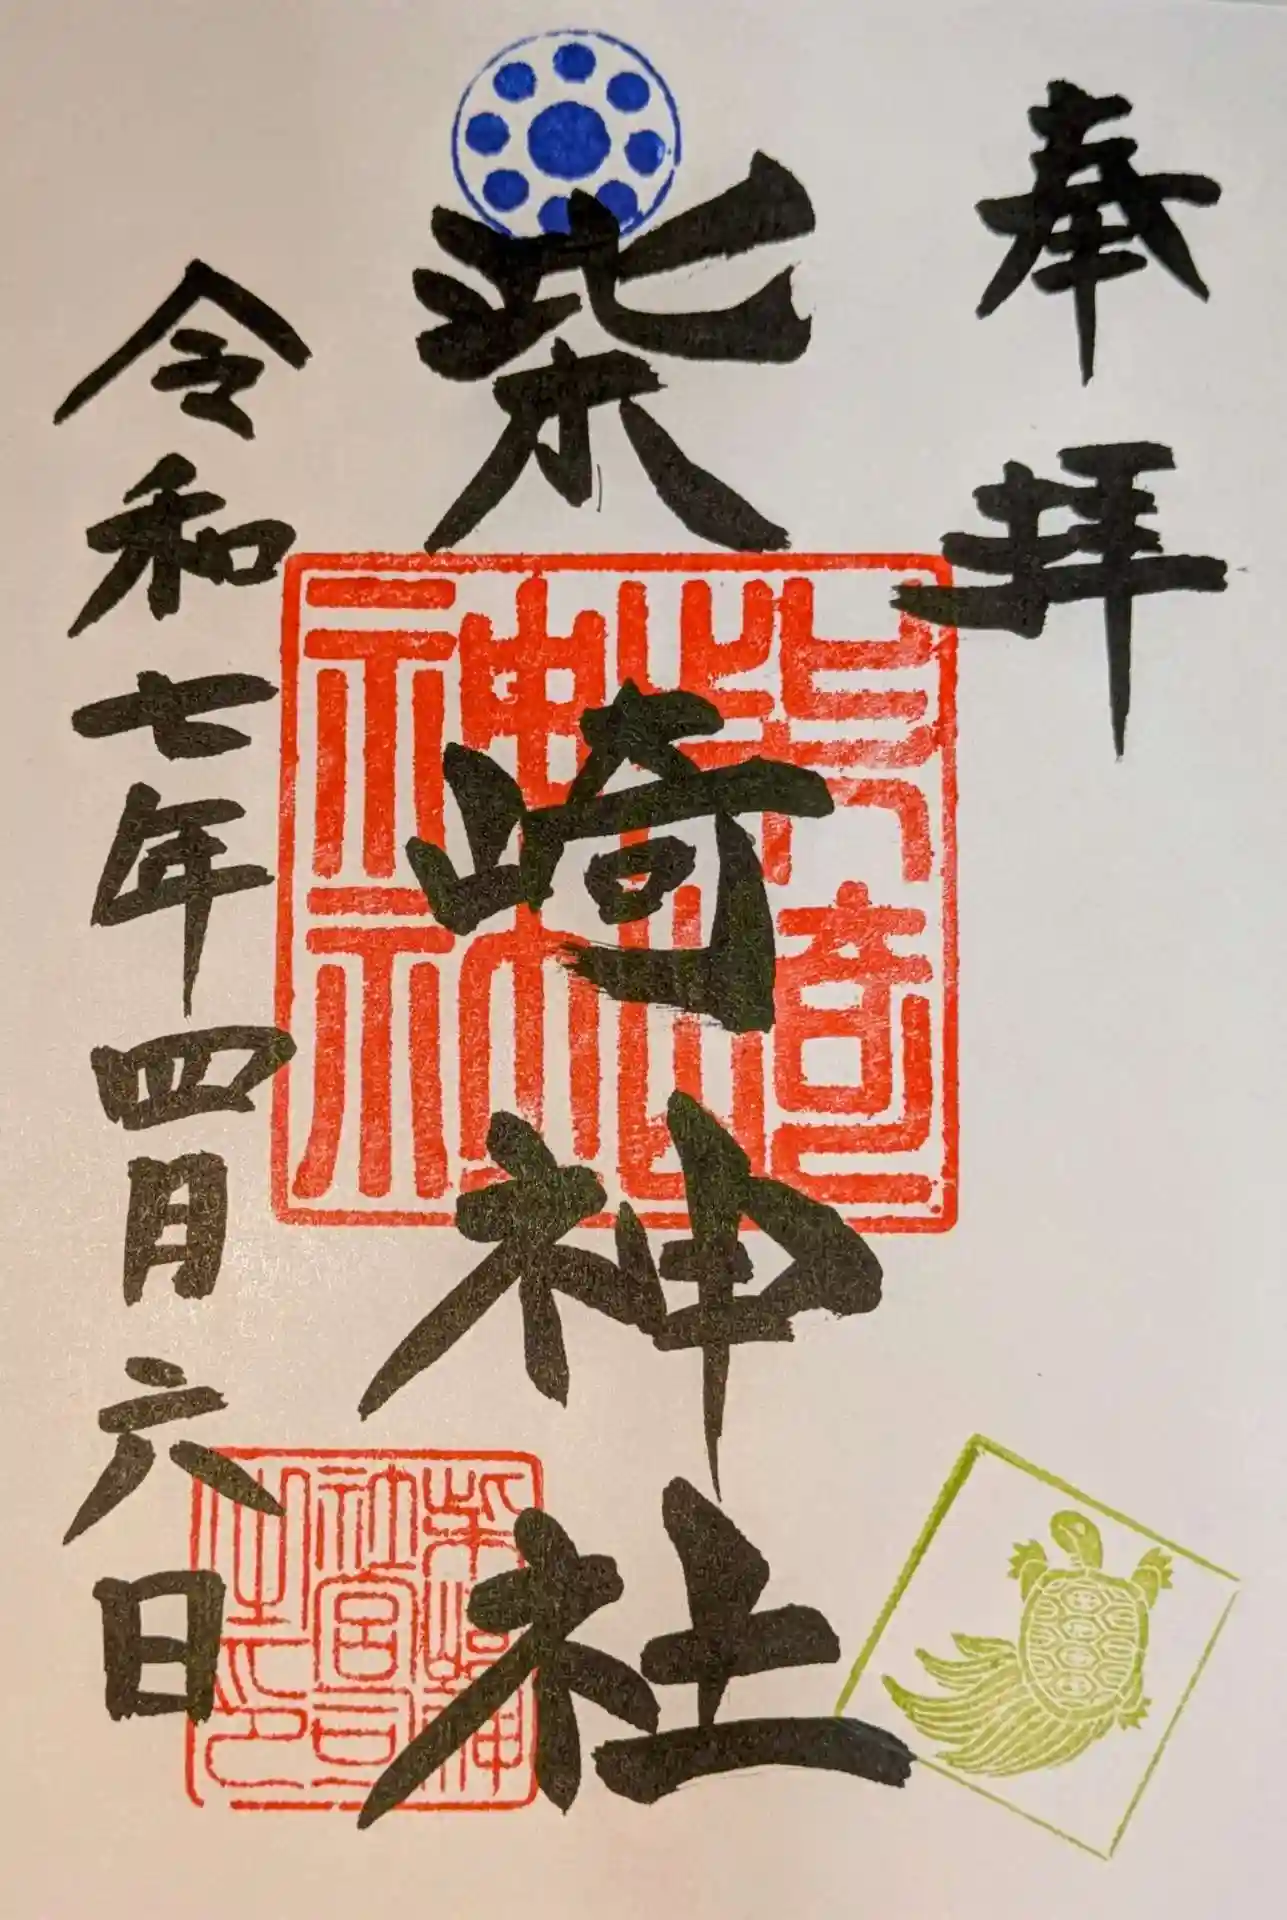 奉拝
柴崎神社
令和七年四月六日
柴崎
神社
柴崎神
社宮司
之印